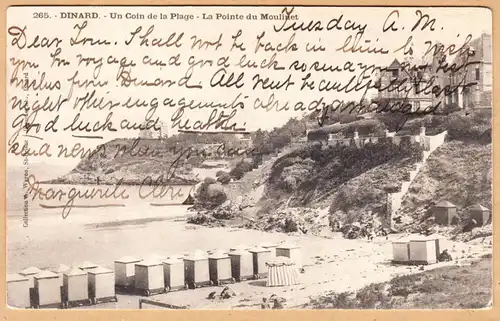 265. - DINARD. - Un Coin de la Plage - La Pointe du Moulinet
Tuesday A.M.
Dear Tom. Shall not be back in time to wish
you bon voyage and good luck so send you best
wishes from Dinard All went beautifully last
night other engagements already arranged
Good luck and health.
Send news when you can
Marguerite
Collections